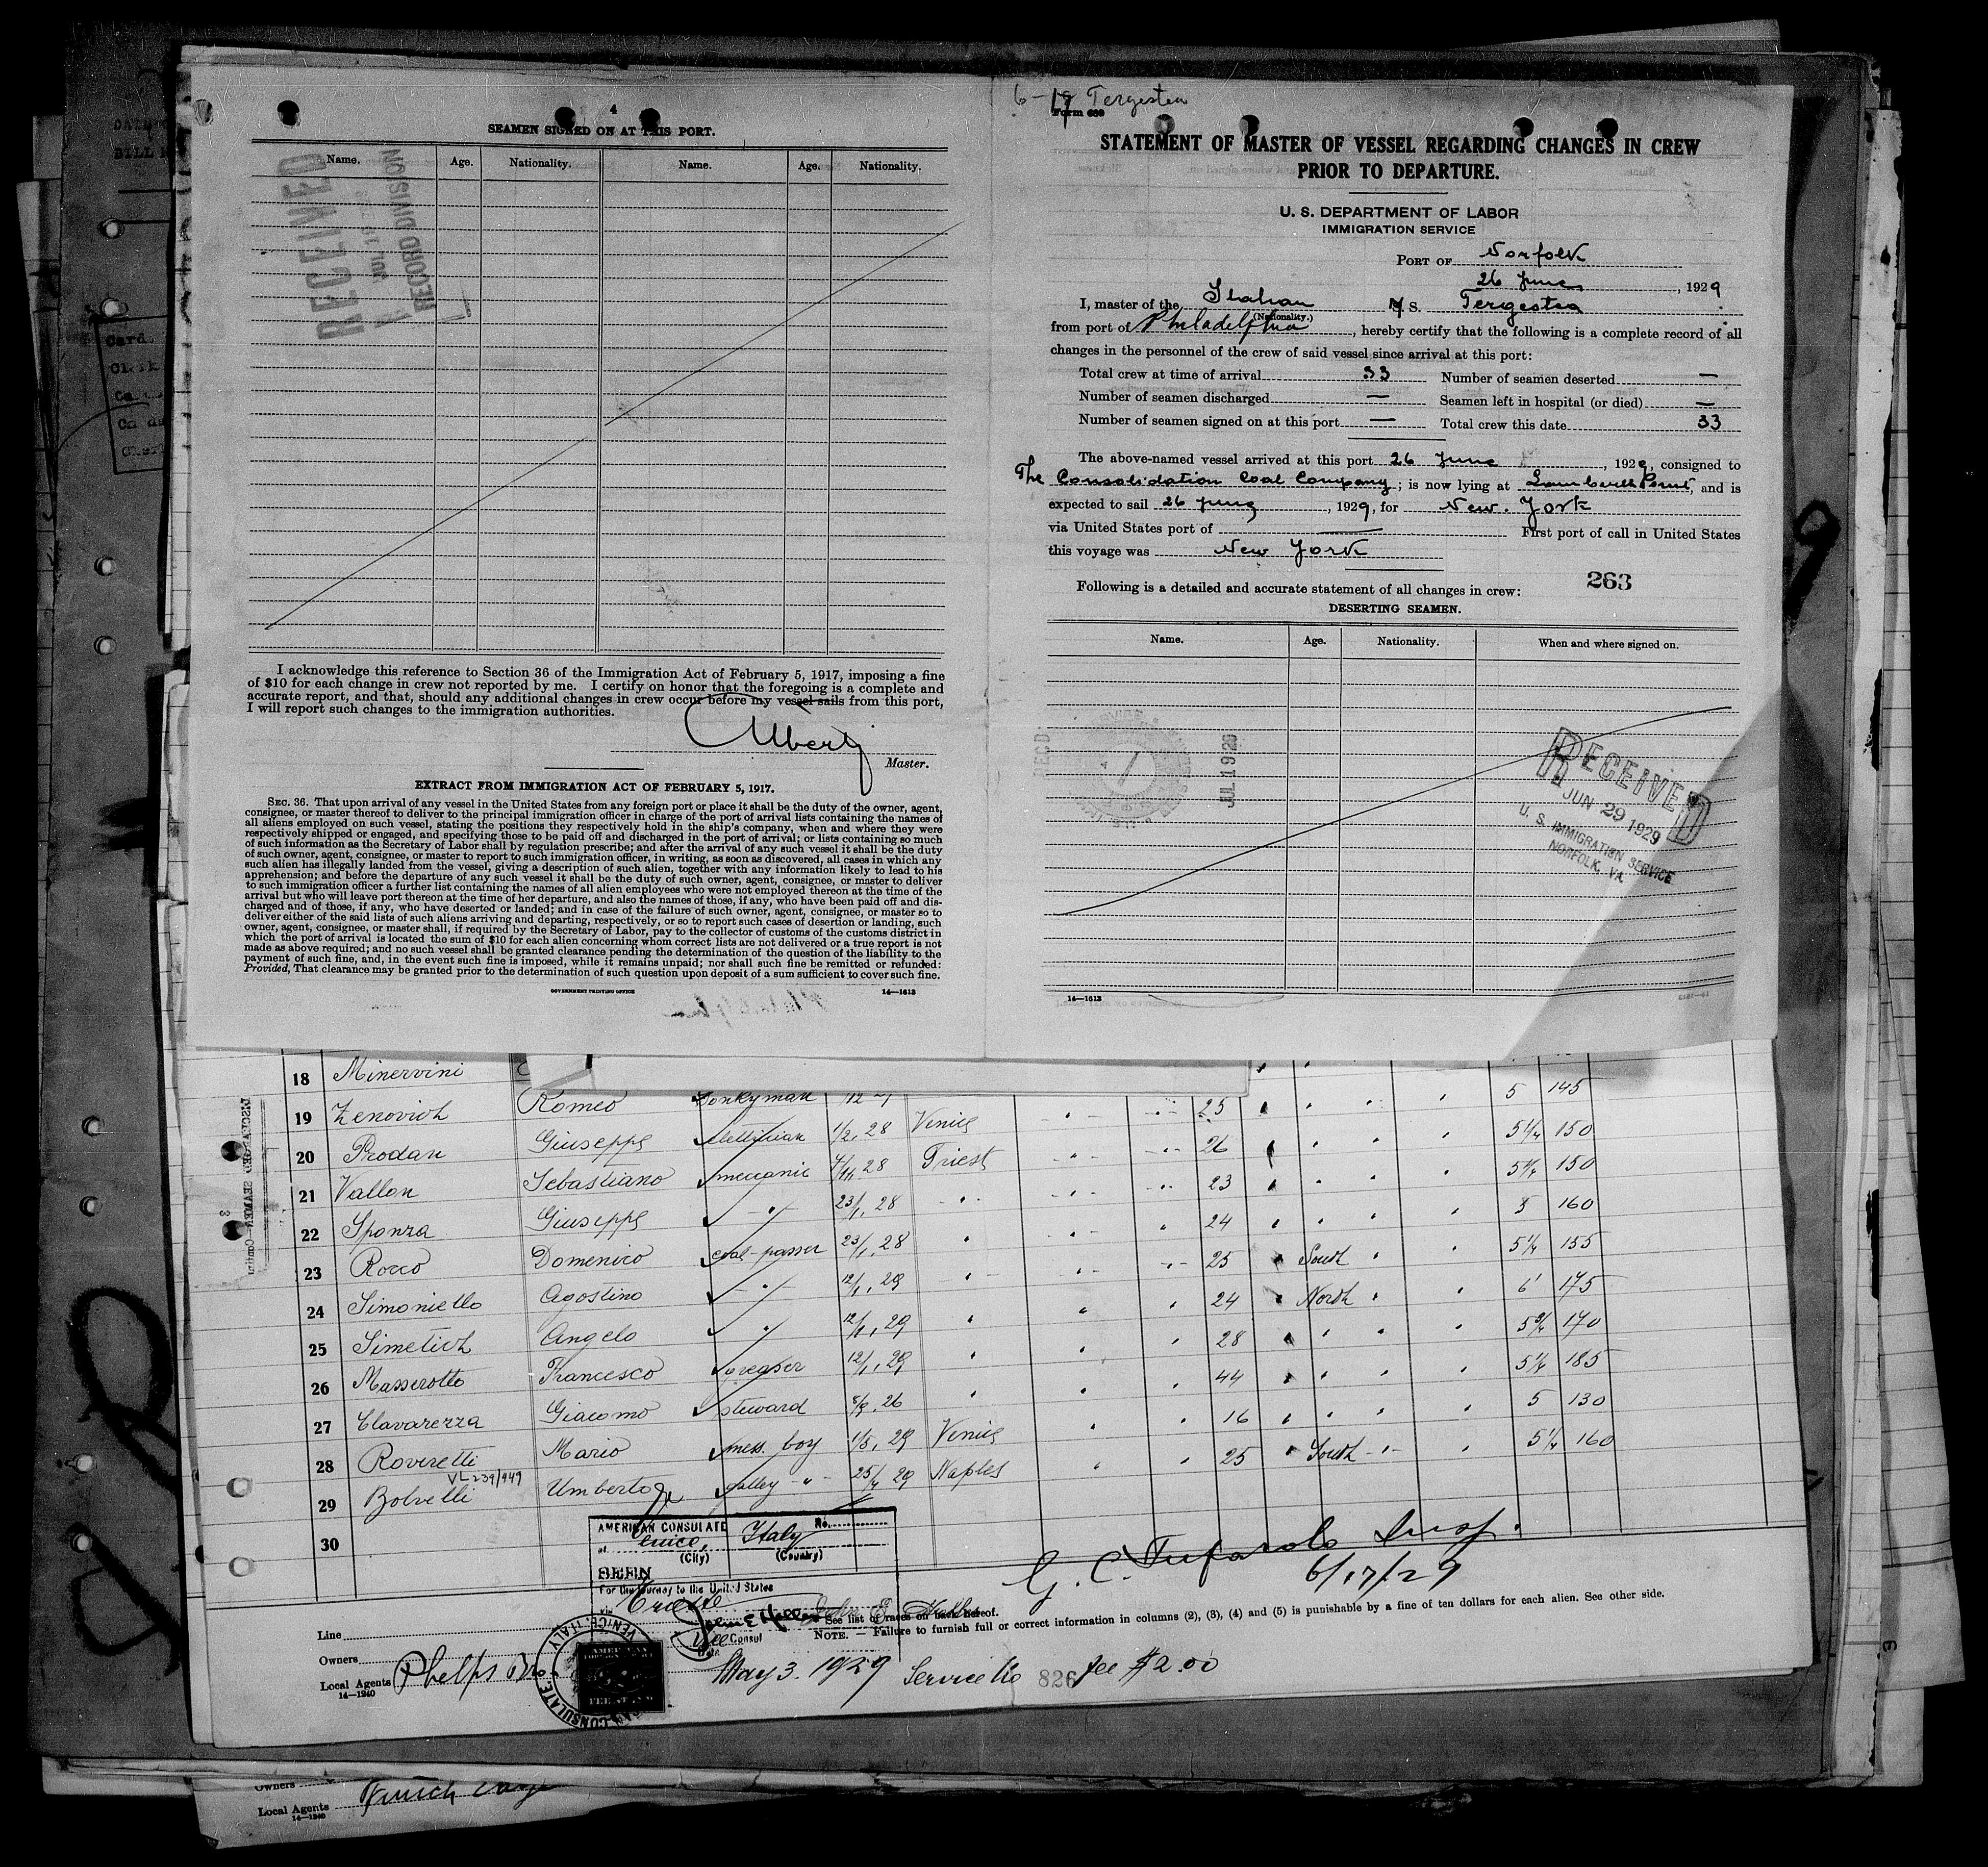 4
SEAMEN SIGNED ON AT THIS PORT.
Name. Age. Nationality. Name. Age. Nationality.
RECORD DIVISION
RECEIVED
I acknowledge this reference to Section 36 of the Immigration Act of February 5, 1917, imposing a fine
of $10 for each change in crew not reported by me. I certify on honor that the foregoing is a complete and
accurate report, and that, should any additional changes in crew occur before my vessel sails from this port,
I will report such changes to the immigration authorities.
Master.
EXTRACT FROM IMMIGRATION ACT OF FEBRUARY 5, 1917.
SEC. 36. That upon arrival of any vessel in the United States from any foreign port or place it shall be the duty of the owner, agent,
consignee, or master thereof to deliver to the principal immigration officer in charge of the port of arrival lists containing the names of
all aliens employed on such vessel, stating the positions they respectively hold in the ship's company, when and where they were
respectively shipped or engaged, and specifying those to be paid off and discharged in the port of arrival; or lists containing so much
of such information as the Secretary of Labor shall by regulation prescribe; and after the arrival of any such vessel it shall be the duty
of such owner, agent, consignee, or master to report to such immigration officer, in writing, as soon as discovered, all cases in which any
such alien has illegally landed from the vessel, giving a description of such alien, together with any information likely to lead to his
apprehension; and before the departure of any such vessel it shall be the duty of such owner, agent, consignee, or master to deliver
to such immigration officer a further list containing the names of all alien employees who were not employed thereon at the time of the
arrival but who will leave port thereon at the time of her departure, and also the names of those, if any, who have been paid off and dis-
charged and of those, if any, who have deserted or landed; and in case of the failure of such owner, agent, consignee, or master so to
deliver either of the said lists of such aliens arriving and departing, respectively, or so to report such cases of desertion or landing, such
owner, agent, consignee, or master shall, if required by the Secretary of Labor, pay to the collector of customs of the customs district in
which the port of arrival is located the sum of $10 for each alien concerning whom correct lists are not delivered or a true report is not
made as above required; and no such vessel shall be granted clearance pending the determination of the question of the liability to the
payment of such fine, and, in the event such fine is imposed, while it remains unpaid; nor shall such fine be remitted or refunded:
Provided, That clearance may be granted prior to the determination of such question upon deposit of a sum sufficient to cover such fine.
GOVERNMENT PRINTING OFFICE 14—1613
6-17 Tergestea
Form 689
STATEMENT OF MASTER OF VESSEL REGARDING CHANGES IN CREW
PRIOR TO DEPARTURE.
U. S. DEPARTMENT OF LABOR
IMMIGRATION SERVICE
PORT OF Norfolk
26 June, 1929
I, master of the Italian S. Tergestea
(Nationality.)
from port of Philadelphia, hereby certify that the following is a complete record of all
changes in the personnel of the crew of said vessel since arrival at this port:
Total crew at time of arrival 33 Number of seamen deserted —
Number of seamen discharged — Seamen left in hospital (or died) —
Number of seamen signed on at this port — Total crew this date 33
The above-named vessel arrived at this port 26 June, 1929, consigned to
The Consolidation Coal Company; is now lying at Lamberts Point, and is
expected to sail 26 June, 1929, for New. York
via United States port of — First port of call in United States
this voyage was New York
263
Following is a detailed and accurate statement of all changes in crew:
DESERTING SEAMEN.
Name. Age. Nationality. When and where signed on.
REC'D. JUL 1 1929
RECEIVED
JUN 29 1929
U. S. IMMIGRATION SERVICE
NORFOLK, VA.
14—1613
DISCHARGED SEAMEN—Contin
3
18 Minervini 5 145
19 Zenovich Romeo Donkyman 25 5¼ 150
20 Prodan Giuseppe 1/2, 28 Venice 26 5¼ 150
21 Vallon Sebastiano meccanic 28 Triest 23 5 160
22 Sponza Giuseppe 23/1, 28 24 5¼ 155
23 Rocco Domenico coal-passer 23/1, 28 25 South 6' 175
24 Simoniello Agostino 12/1, 29 24 North 170
25 Simetich Angelo 12/1, 29 28 185
26 Masserotto Francesco greaser 12/1, 29 44 5 130
27 Clavarezza Giacomo steward 26 16 5¼ 160
28 Roviretti Mario mess. boy 1/5, 29 Venice 25 South
VL 239/949
29 Bolvelli Umberto galley 25/4 29 Naples
30
AMERICAN CONSULATE No.
at Venice, Italy
(City) (Country)
SEEN
For the journey to the United States
via Trieste
Vice Consul
Date
May 3. 1929 Service No 826 fee $2.00
G. C. Tufarolo Insp.
6/17/29
See list of races on back hereof.
NOTE. — Failure to furnish full or correct information in columns (2), (3), (4) and (5) is punishable by a fine of ten dollars for each alien. See other side.
Line
Owners
Local Agents Phelps Bro
14—1240
AMERICAN CONSULATE. VENICE, ITALY
Owners
Local Agents
14—1240